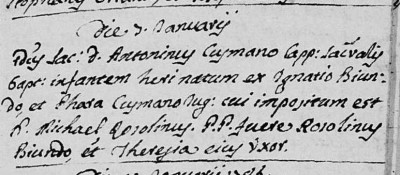 Die 7. Januarij
Idem Sac: D. Antoninus Cusmano Capp: Sacralis
bapt: infantem heri natum ex Ignatio Biun-
do, et Phara Cusmano Jug: cui impositum est
N. Michael Rosolinus. P.P. fuere Rosolinus
Biundo, et Theresia eius Uxor.